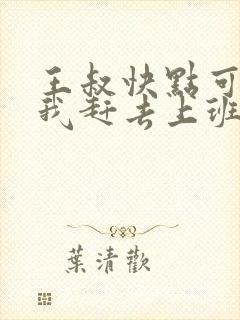 王叔快點可
我赶去上班
葉清歡